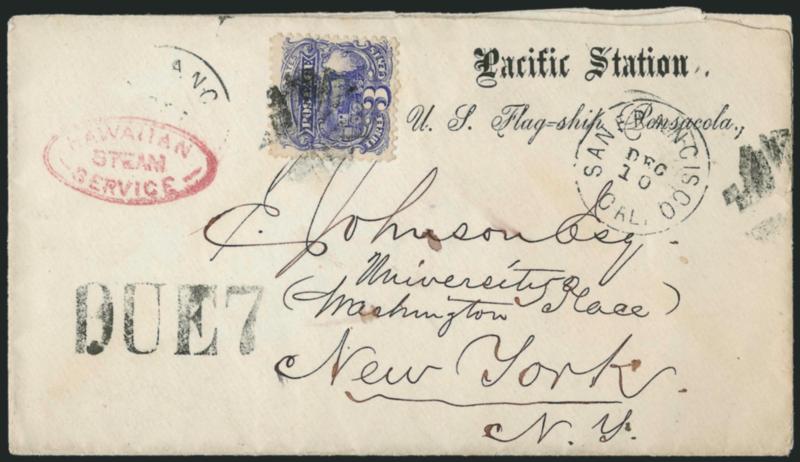 Pacific Station,
U. S. Flag=ship Pensacola,
SAN FRANCISCO
DEC
10
CAL.
HAWAIIAN
STEAM
SERVICE
POSTAGE
3
DUE 7
Johnson Esq.
University Place
(Washington )
New York.
N. Y.